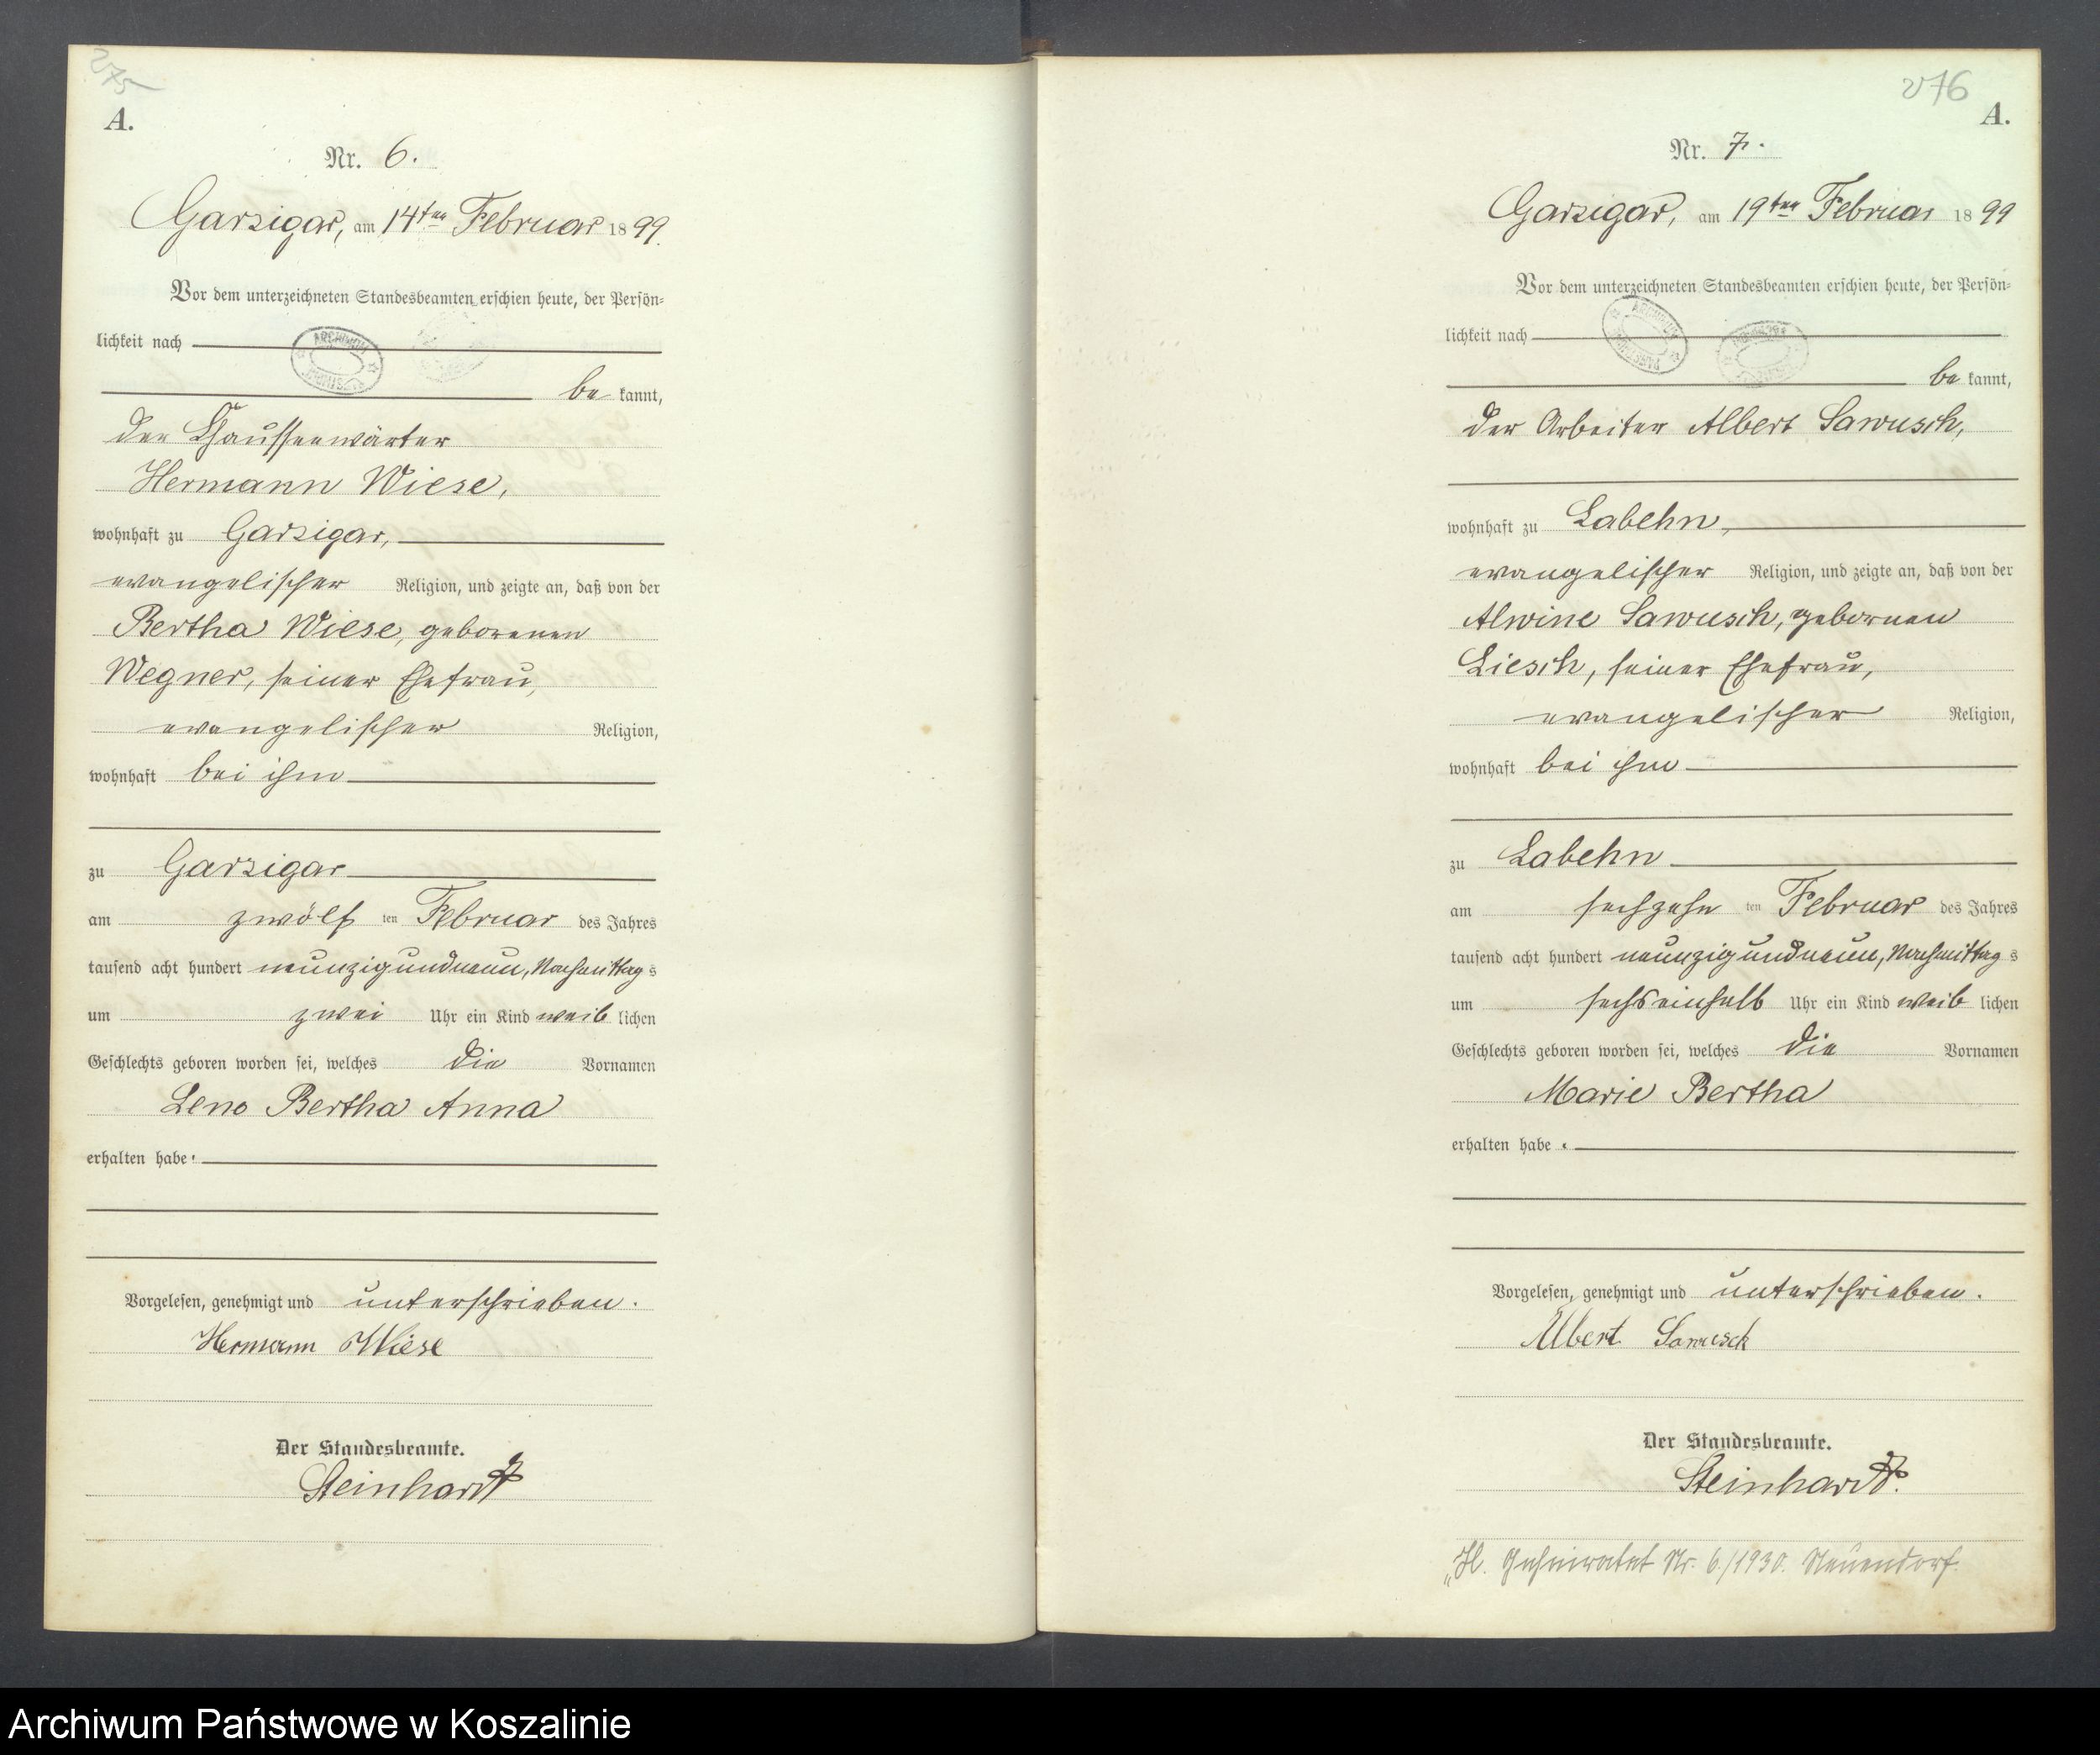 275
A.
Nr. 6.
Garzigar, am 14ten Februar 1899.
Vor dem unterzeichneten Standesbeamten erschien heute, der Persön-
lichkeit nach
be kannt,
der Chausseewärter
Hermann Wiese,
wohnhaft zu Garzigar,
evangelischer Religion, und zeigte an, daß von der
Bertha Wiese, geborenen
Wegner, seiner Ehefrau,
evangelischer Religion,
wohnhaft bei ihm
zu Garzigar
am zwölf ten Februar des Jahres
tausend acht hundert neunzigundneun, Nachmittag s
um zwei Uhr ein Kind weib lichen
Geschlechts geboren worden sei, welches die Vornamen
Bertha Anna
erhalten habe.
Vorgelesen, genehmigt und unterschrieben.
Hermann Wiese
Der Standesbeamte.
Steinhardt
276
A.
Nr. 7.
Garzigar, am 19ten Februar 1899
Vor dem unterzeichneten Standesbeamten erschien heute, der Persön-
lichkeit nach
ARCHIWUM
be kannt,
der Arbeiter Albert Sawusch,
wohnhaft zu Labehn,
evangelischer Religion, und zeigte an, daß von der
Alwine Sawusch, gebornen
Liesch, seiner Ehefrau,
evangelischer Religion,
wohnhaft bei ihm
zu Labehn
am sechzehn ten Februar des Jahres
tausend acht hundert neunzigundneun, Nachmittag s
um sechseinhalb Uhr ein Kind weib lichen
Geschlechts geboren worden sei, welches die Vornamen
Marie Bertha
erhalten habe.
Vorgelesen, genehmigt und unterschrieben.
Albert Sawusch
Der Standesbeamte.
Steinhardt.
Geheiratet Nr. 6/1930. Neuendorf.
Archiwum Państwowe w Koszalinie